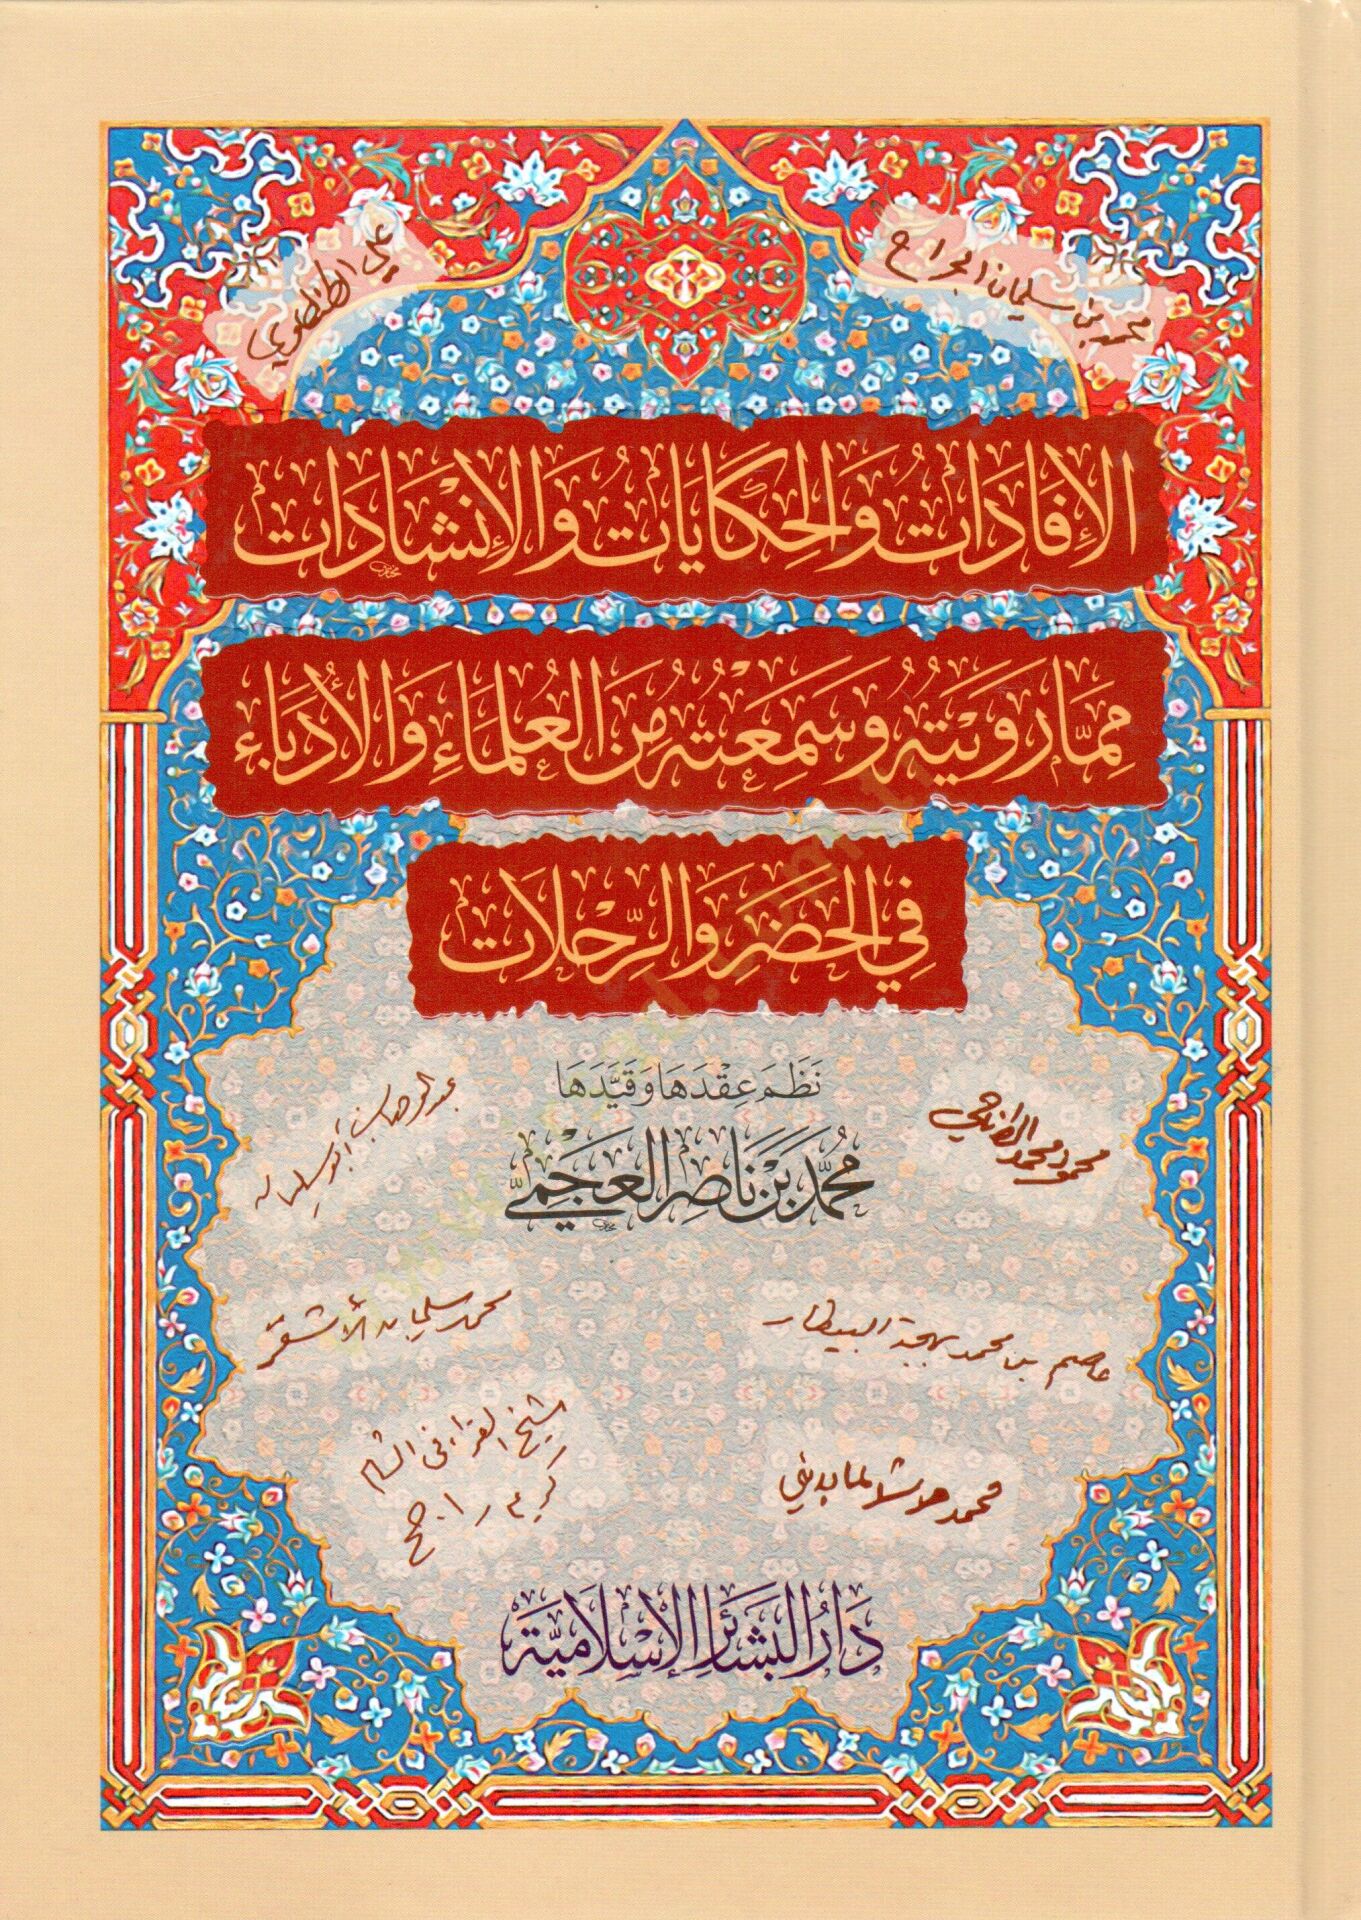 محمد بن سليمان الجراح
علي الطنطاوي
الإِفَادَاتُ وَالحِكَايَاتُ وَالإِنْشَادَات
مِمَّا رَوَيْتُهُ وَسَمِعْتُهُ مِنَ العُلَمَاءِ وَالأُدَبَاء
فِي الحَضَرِ وَالرِّحْلَات
نَظَمَ عِقْدَهَا وَقَيَّدَهَا
مُحَمَّد بَنْ نَاصِر العَجَمِيّ
محمود محمد الطناحي
عبد الوهاب أبو سليمان
عاصم بن محمد بهجة البيطار
محمد سليمان الأشقر
شيخ القراء في الشام
كريم راجح
محمد
دَارُ البَشَائِرِ الإِسْلَامِيَّة